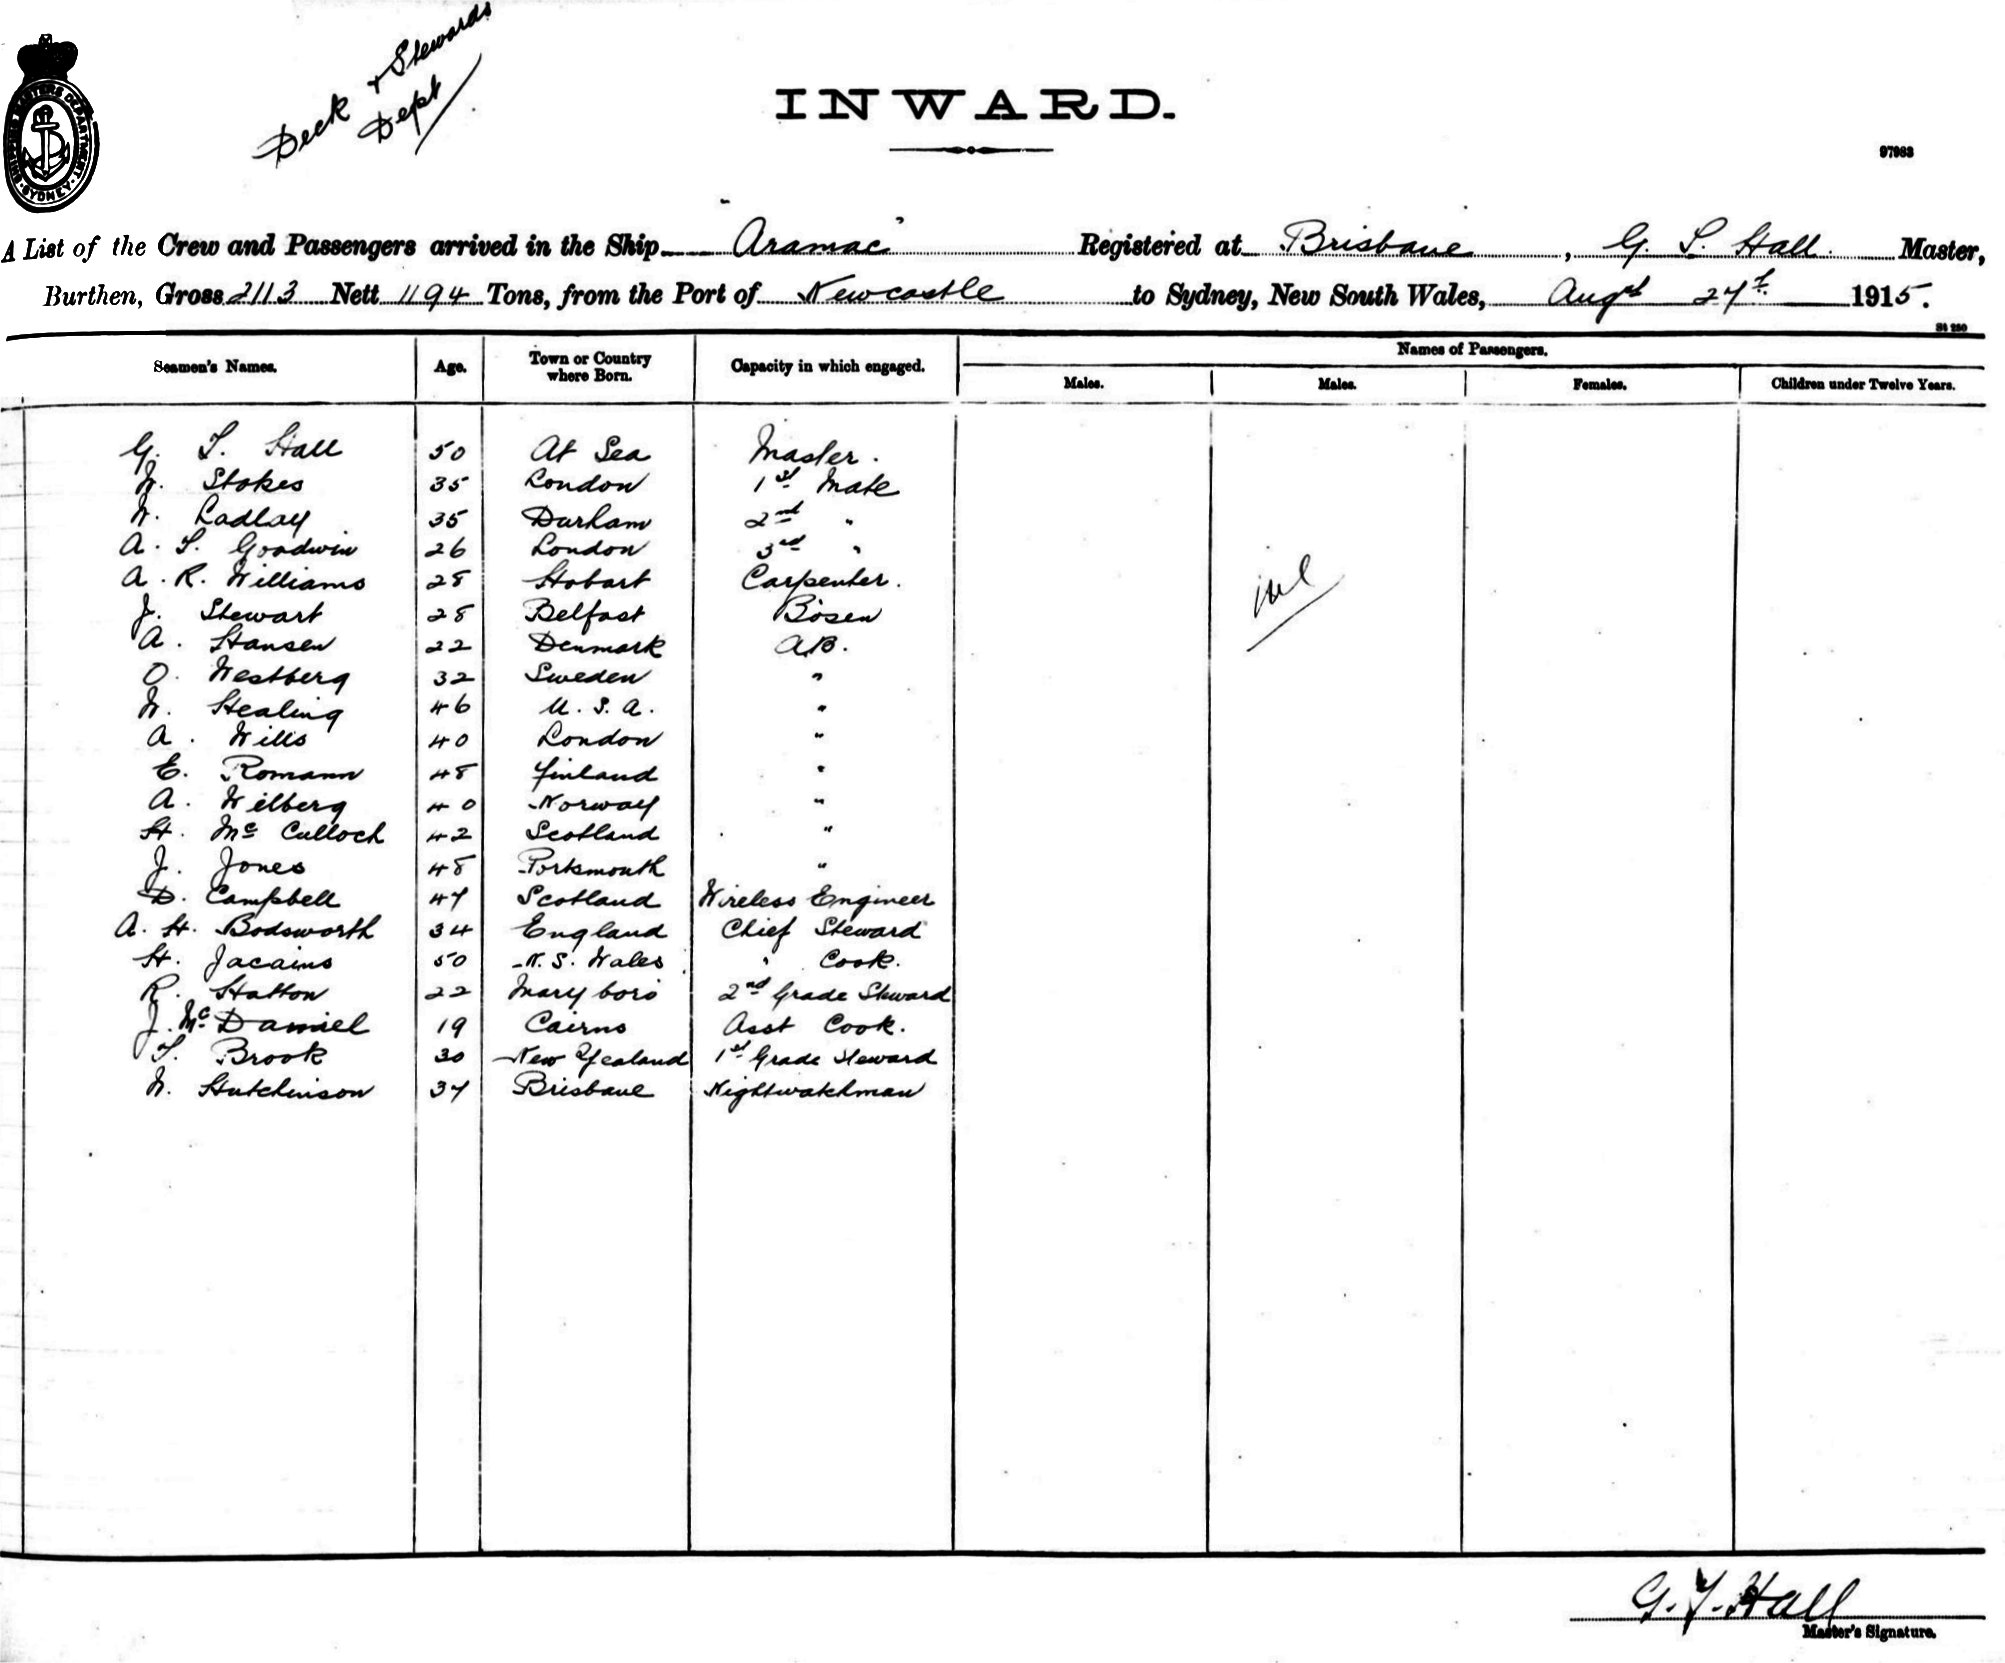 Deck & Stewards
Dept
SHIPPING MASTERS DEPARTMENT · SYDNEY ·
INWARD.
97983
A List of the Crew and Passengers arrived in the Ship "Aramac" Registered at Brisbane, G. T. Hall. Master,
Burthen, Gross 2113 Nett 1194 Tons, from the Port of Newcastle to Sydney, New South Wales, Augst 27th 1915.
St 280
Seamen's Names. Age. Town or Country where Born. Capacity in which engaged. Names of Passengers.
Males. Males. Females. Children under Twelve Years.
G. T. Hall 50 At Sea Master.
W. Stokes 35 London 1st Mate
W. Ladlay 35 Durham 2nd "
A. T. Goodwin 26 London 3rd "
A. R. Williams 28 Hobart Carpenter.
J. Stewart 28 Belfast Bosen
A. Hansen 22 Denmark A.B.
O. Westberg 32 Sweden "
W. Healing 46 U.S.A. "
A. Wills 40 London "
E. Romann 48 Finland "
A. Wilberg 40 Norway "
H. McCulloch 42 Scotland "
J. Jones 48 Portsmouth "
D. Campbell 47 Scotland Wireless Engineer
A. H. Bodsworth 34 England Chief Steward
H. Jacains 50 N. S. Wales " Cook.
R. Hatton 22 Maryboro 2nd Grade Steward
J. McDaniel 19 Cairns Asst Cook.
T. Brook 30 New Zealand 1st Grade Steward
W. Hutchinson 37 Brisbane Nightwatchman
G. T. Hall
Master's Signature.